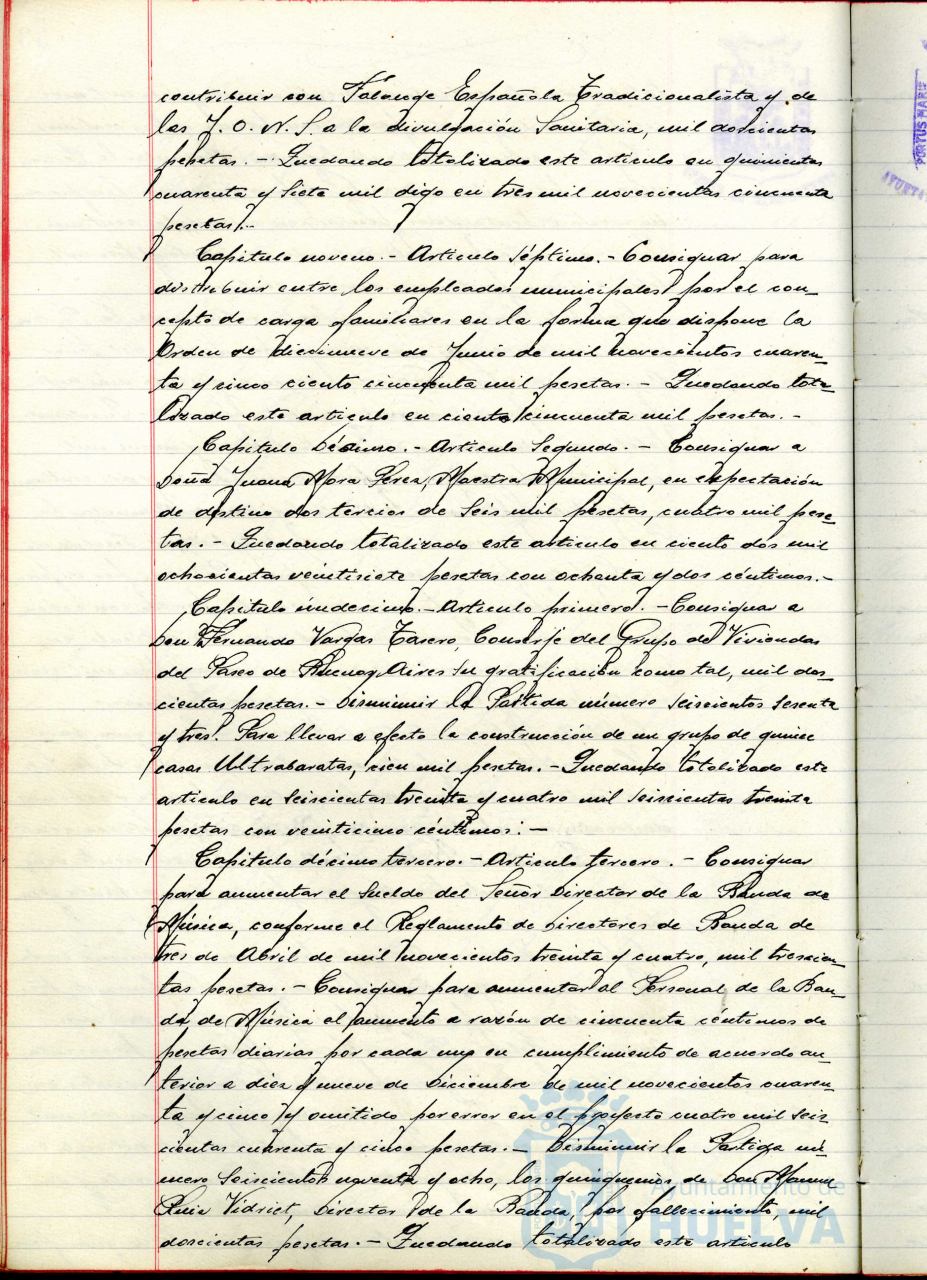 contribuir con Falange Española Tradicionalista y de
las J. O. N. S. a la divulgación Sanitaria, mil doscientas
pesetas. - Quedando totalizado este artículo en quinientas
cuarenta y siete mil digo en tres mil novecientas cincuenta
pesetas. -
Capitulo noveno. - Articulo Séptimo. - Consignar para
distribuir entre los empleados municipales por el con-
cepto de carga familiares en la forma que dispone la
Orden de diecinueve de Junio de mil novecientos cuaren-
ta y cinco ciento cincuenta mil pesetas. - Quedando tota-
lizado este artículo en ciento cincuenta mil pesetas. -
Capitulo Décimo. - Articulo Segundo. - Consignar a
Doña Juana Mora Perez, Maestra Municipal, en expectación
de destino dos tercios de Seis mil pesetas, cuatro mil pese-
tas. - Quedando totalizado este artículo en ciento dos mil
ochocientas veintisiete pesetas con ochenta y dos céntimos. -
Capitulo úndecimo. - Articulo primero. - Consignar a
Don Fernando Vargas Tasero, Conserje del Grupo de Viviendas
del Paseo de Buenos Aires su gratificación como tal, mil dos-
cientas pesetas. - Disminuir la Partida número seiscientos sesenta
y tres. Para llevar a efecto la construcción de un grupo de quince
casas Ultrabaratas, cien mil pesetas. - Quedando totalizado este
artículo en seiscientas treinta y cuatro mil seiscientas treinta
pesetas con veinticinco céntimos: -
Capitulo décimo tercero. - Articulo tercero. - Consignar
para aumentar el sueldo del Señor Director de la Banda de
Música, conforme el Reglamento de Directores de Banda de
tres de Abril de mil novecientos treinta y cuatro, mil trescien-
tas pesetas. - Consignar para aumentar al Personal de la Ban-
da de Música el aumento a razón de cincuenta céntimos de
pesetas diarias por cada uno en cumplimiento de acuerdo an-
terior a diez y nueve de Diciembre de mil novecientos cuaren-
ta y cinco y omitido por error en el proyecto cuatro mil seis-
cientas cuarenta y cinco pesetas. - Disminuir la Partida nú-
mero Seiscientos noventa y ocho, los quinquenios de Don Manuel
Ruiz Vidriet, Director de la Banda, por fallecimiento, mil
doscientas pesetas. - Quedando totalizado este artículo
Ayuntamiento de
HUELVA